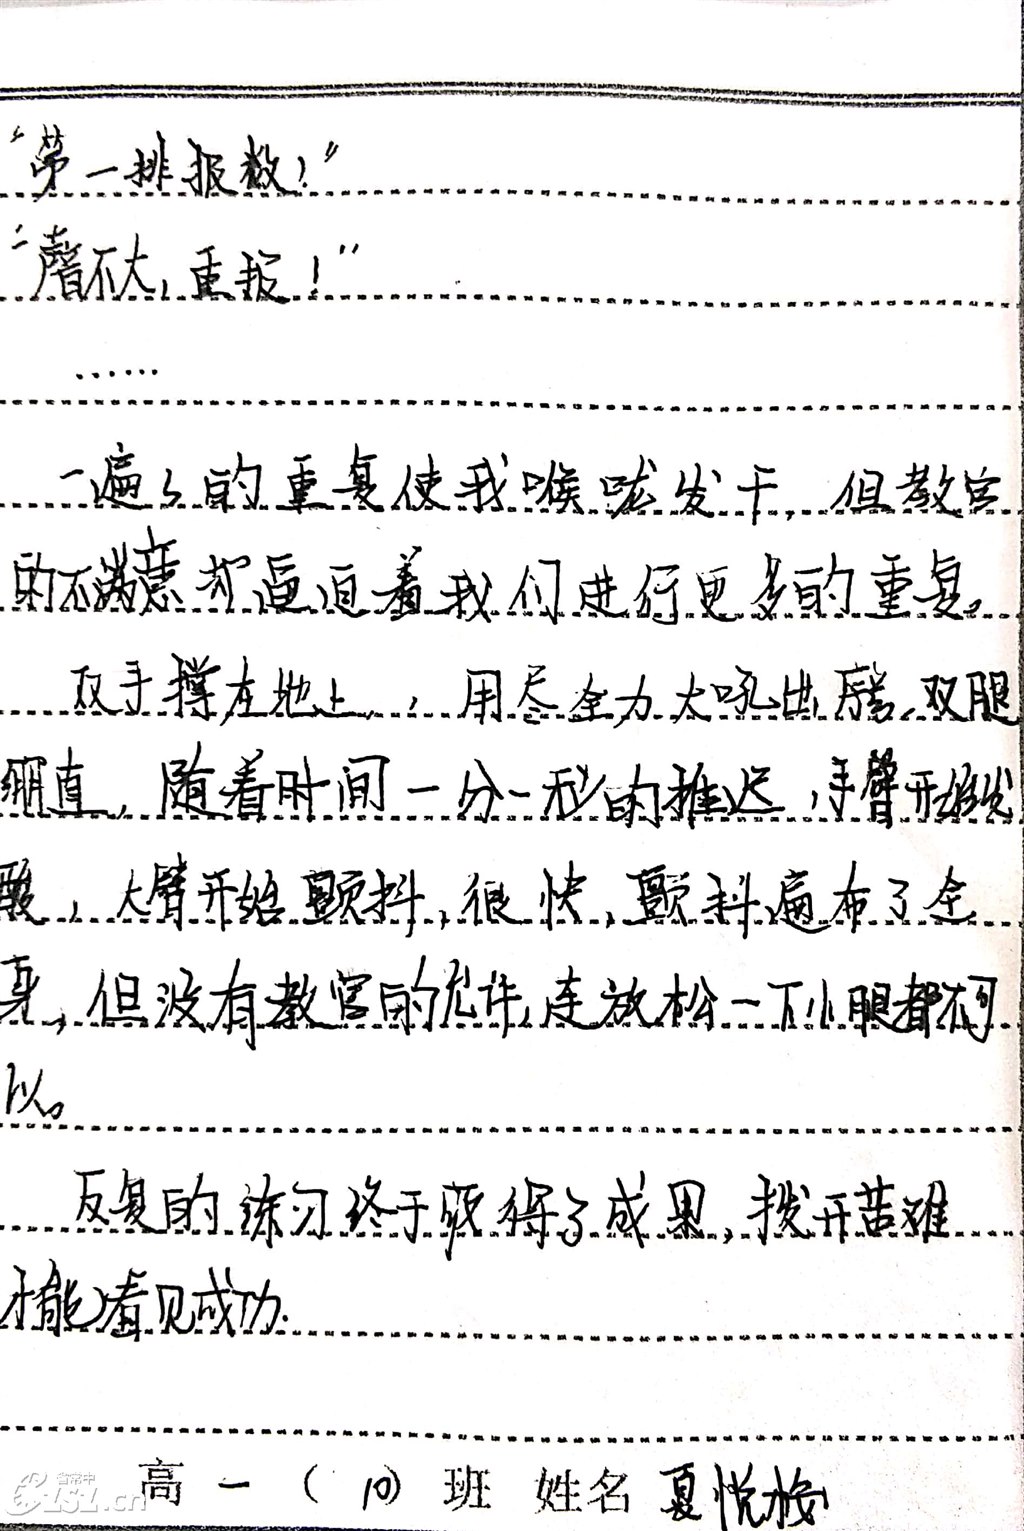 “第一排报数!”
“声不大,重报!”
……
一遍々的重复使我喉咙发干,但教官
的不满意却逼迫着我们进行更多的重复。
双手撑在地上,用尽全力大吼出声,双腿
绷直,随着时间一分一秒的推迟,手臂开始发
酸,大臂开始颤抖,很快,颤抖遍布了全
身,但没有教官的允许,连放松一下小腿都不可
以。
反复的练习终于取得了成果,拨开苦难
才能看见成功.
高一(10)班 姓名 夏悦
省常中
CZSZ.cn